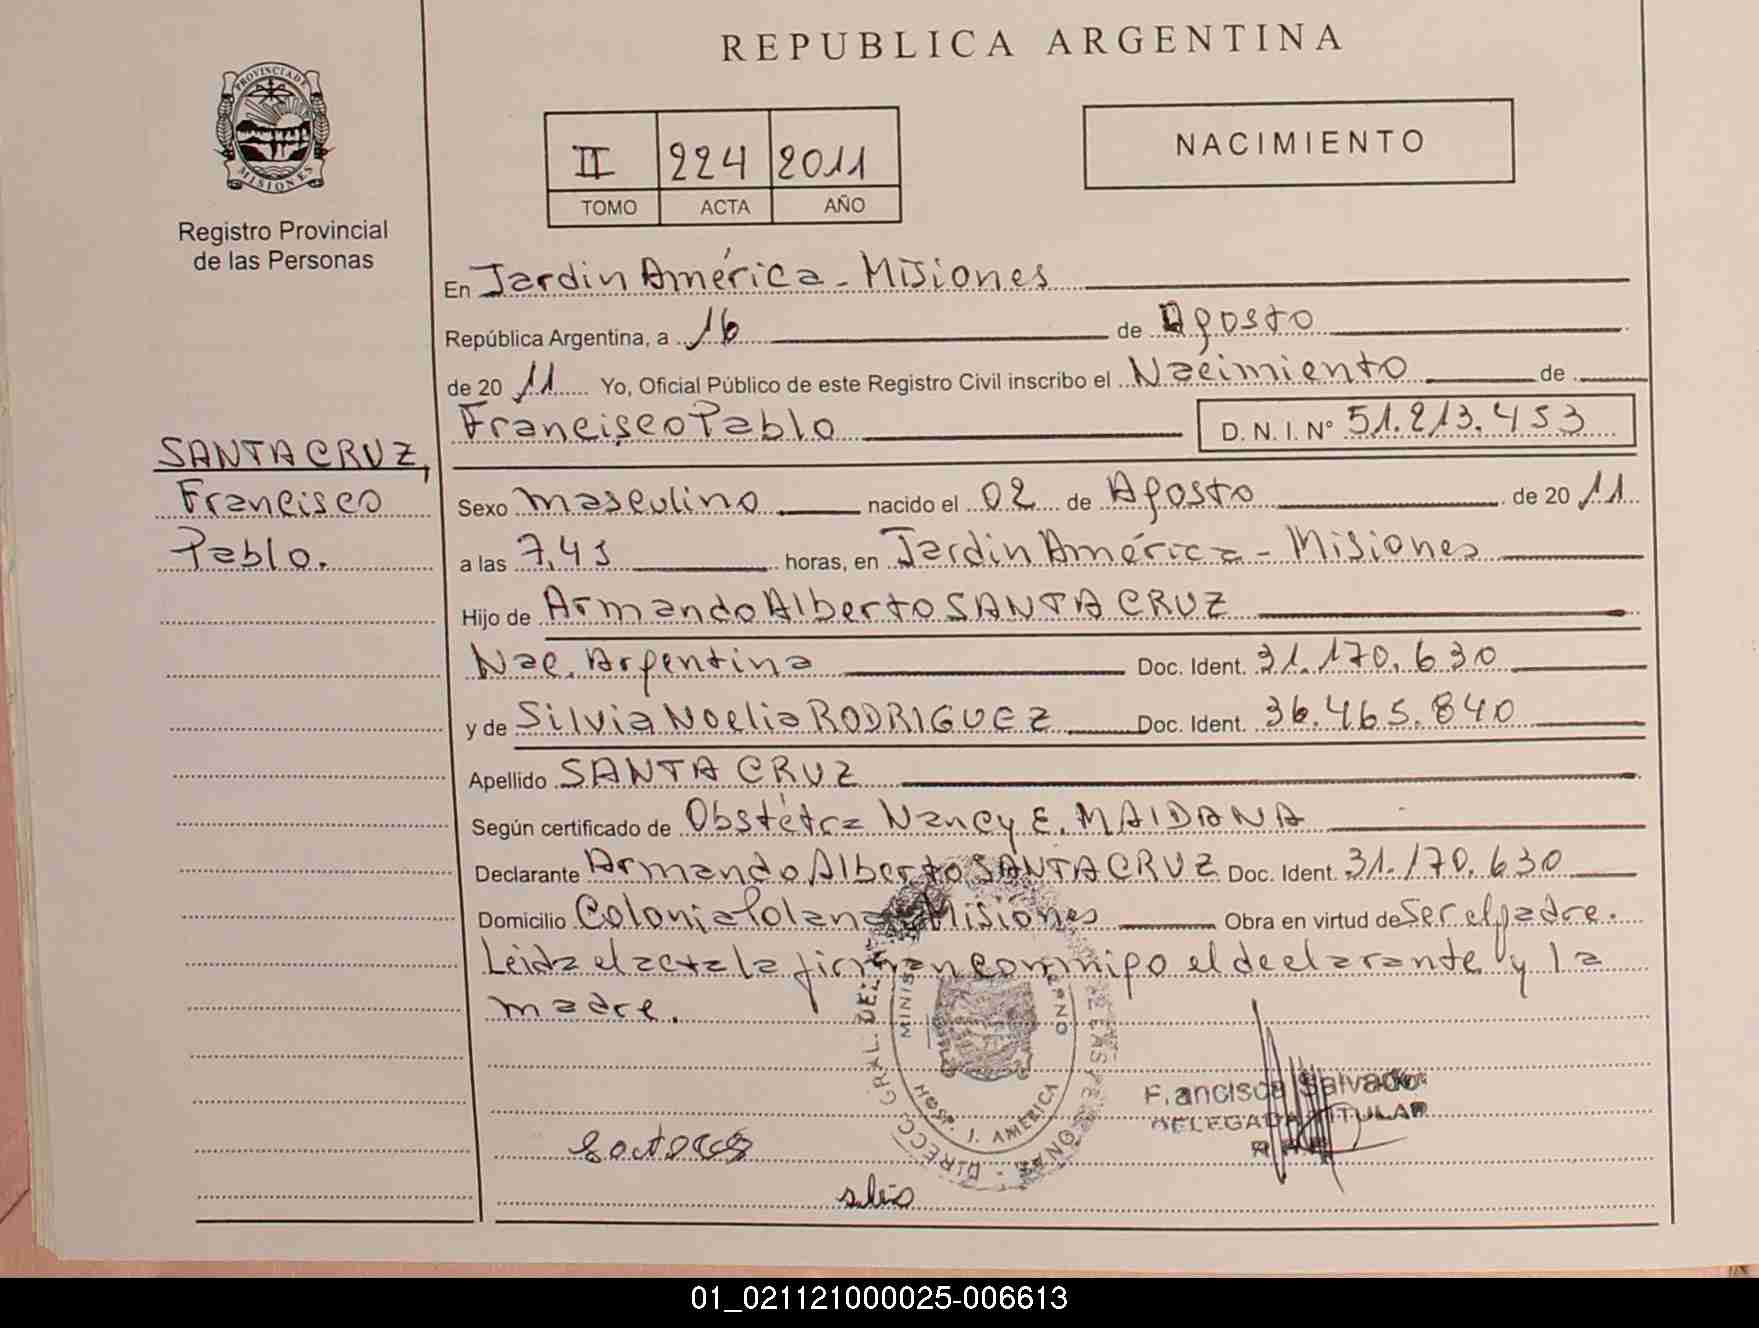 REPUBLICA ARGENTINA
PROVINCIA DE
MISIONES
Registro Provincial
de las Personas
II 224 2011
TOMO ACTA AÑO
NACIMIENTO
En Jardin América - Misiones
República Argentina, a 16 de Agosto
de 20 11 Yo, Oficial Público de este Registro Civil inscribo el Nacimiento de
Francisco Pablo D. N. I. N° 51.213.453
SANTA CRUZ,
Francisco
Pablo.
Sexo masculino nacido el 02 de Agosto de 20 11
a las 7,45 horas, en Jardin América - Misiones
Hijo de Armando Alberto SANTA CRUZ
Nac. Argentina Doc. Ident. 31.170.630
y de Silvia Noelia RODRIGUEZ Doc. Ident. 36.465.840
Apellido SANTA CRUZ
Según certificado de Obstétra Nancy E. MAIDANA
Declarante Armando Alberto SANTA CRUZ Doc. Ident. 31.170.630
Domicilio Colonia Polana Misiones Obra en virtud de Ser el padre.
Leida el acta la firman conmigo el declarante y la
madre.
HOSP. J. AMERICA
DIRECC GRAL. DEL
F.ancisca Salvador
DELEGADA TITULAR
01_021121000025-006613